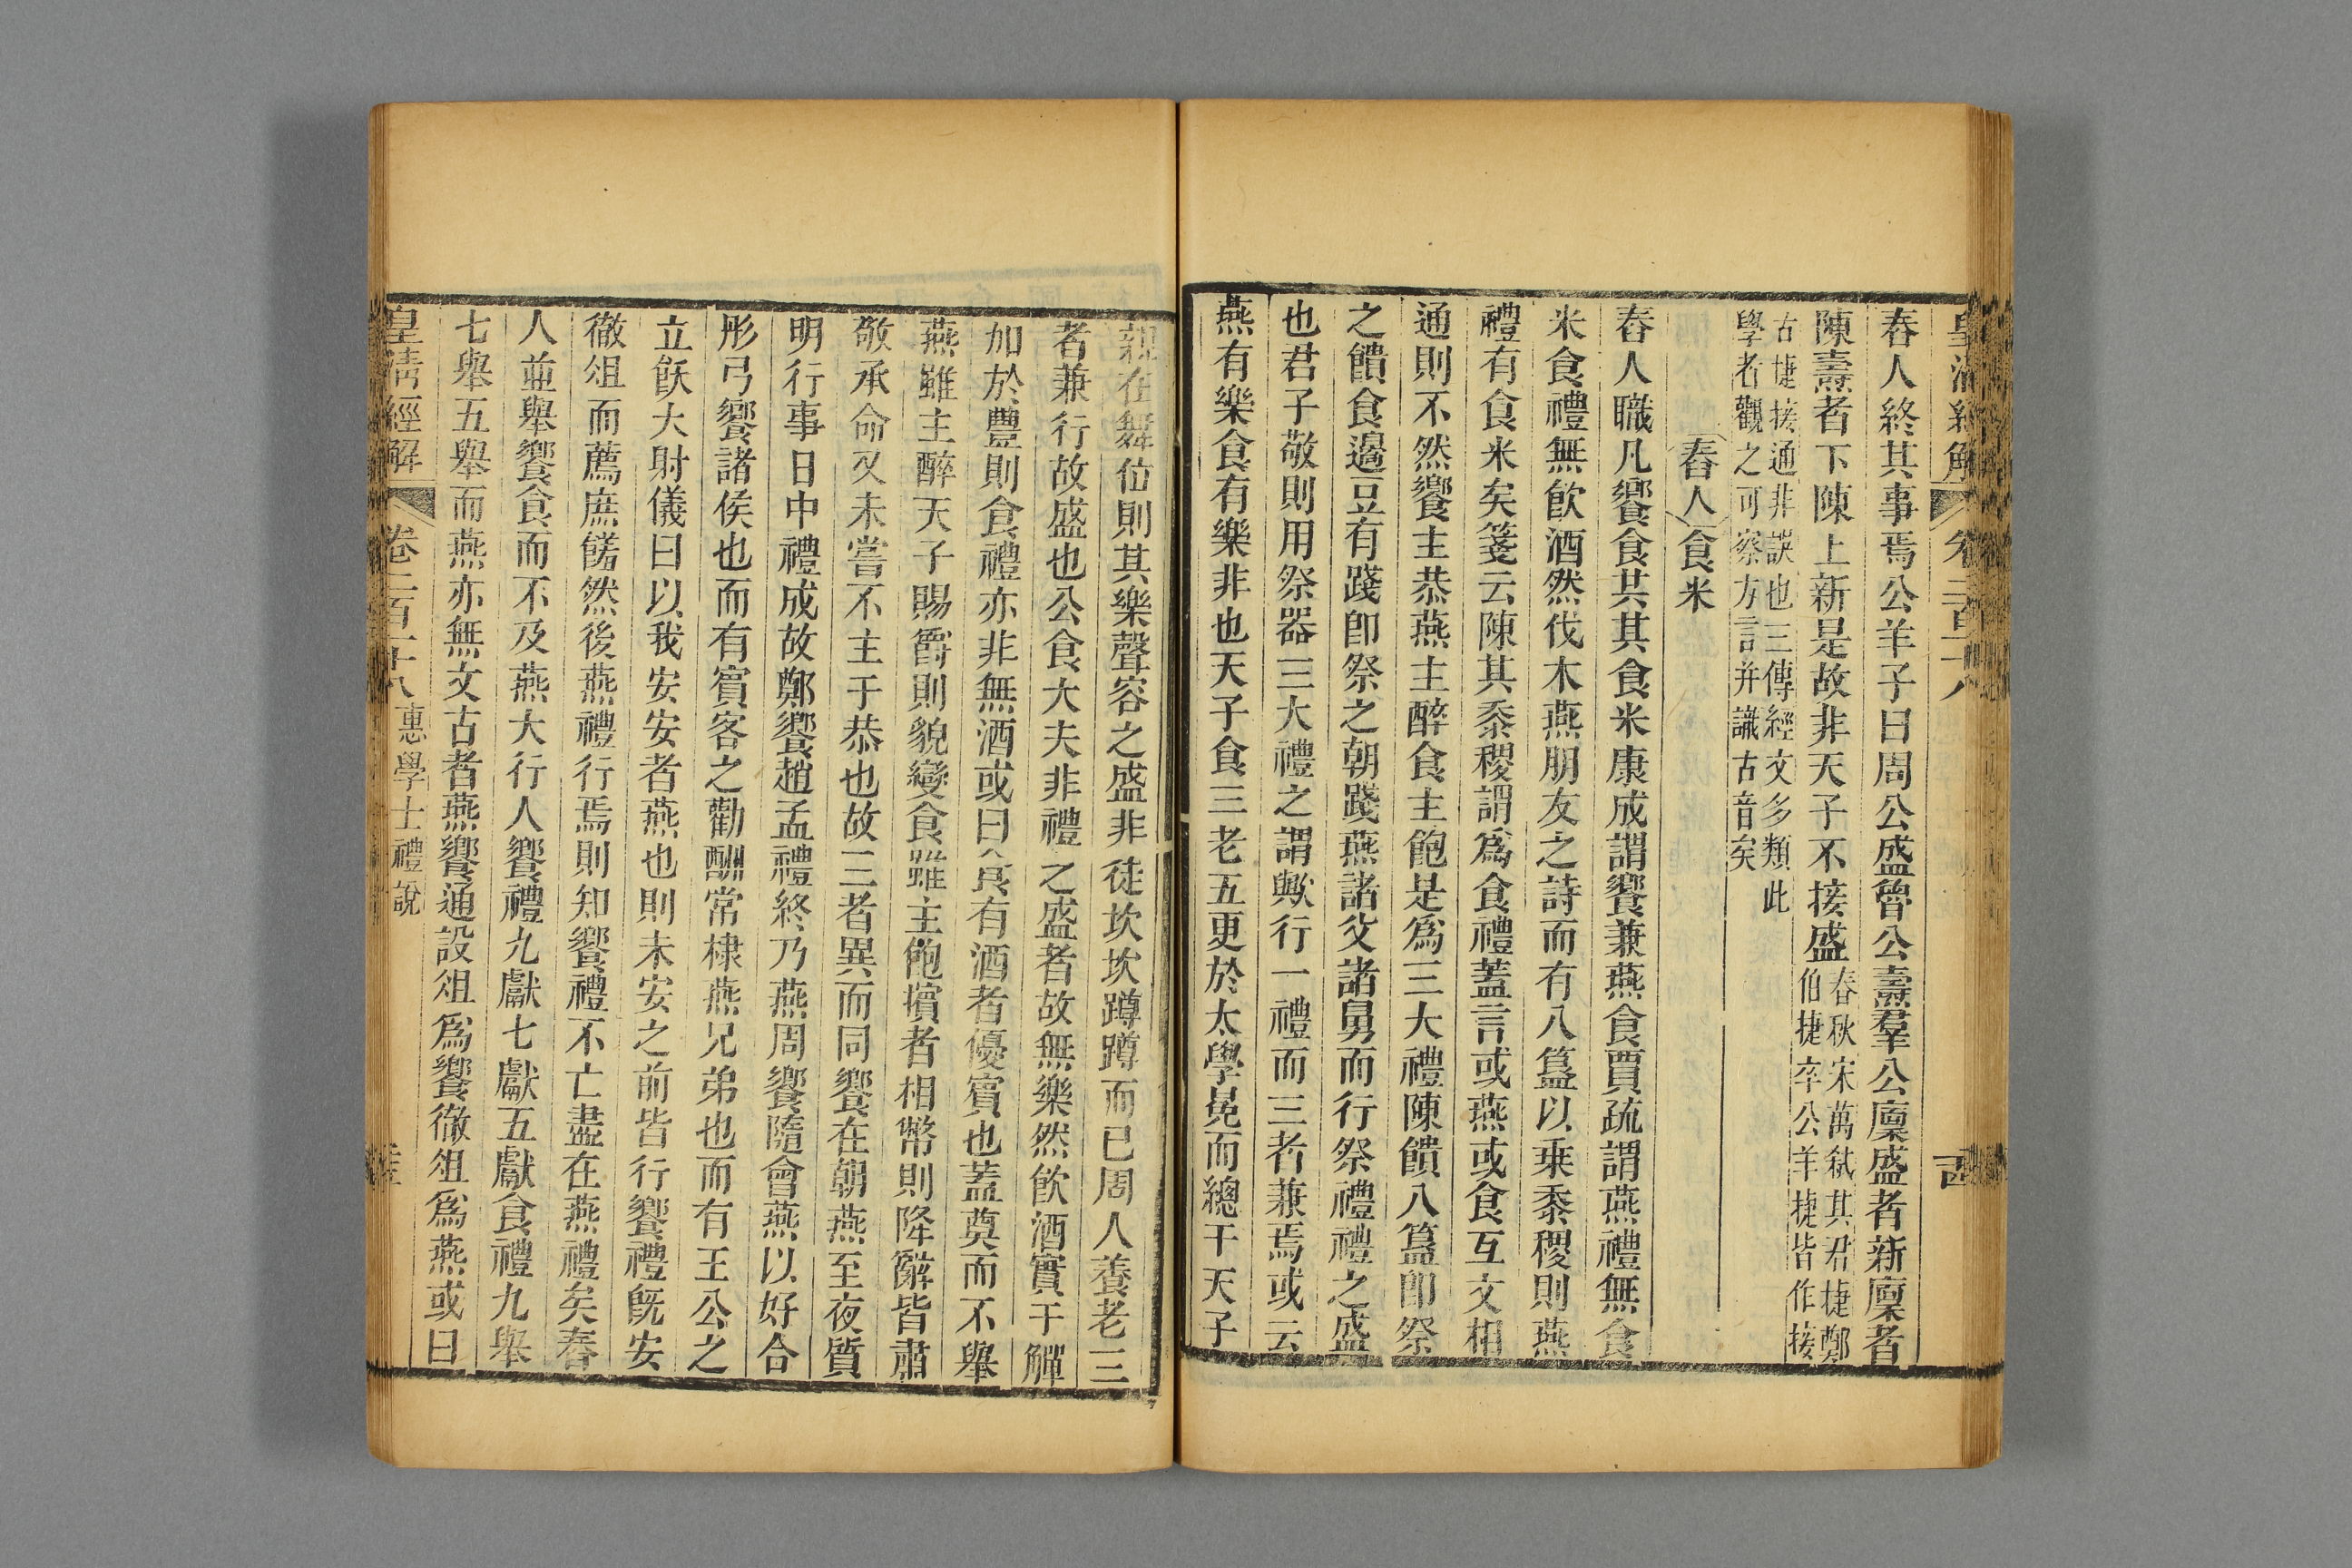 皇清經解 卷二百十八 茜
舂人終其事焉公羊子曰周公盛魯公燾羣公廩盛者新廩者
陳燾者下陳上新是故非天子不接盛春秋宋萬弒其君捷鄭
伯捷卒公羊捷皆作接
古捷接通非誤也三傳經文多類此
學者觀之可察方言并識古音矣
舂人食米
舂人職凡饗食共其食米康成謂饗兼燕食賈疏謂燕禮無食
米食禮無飲酒然伐木燕朋友之詩而有八簋以乗黍稷則燕
禮有食米矣箋云陳其黍稷謂爲食禮葢言或燕或食互文相
通則不然饗主恭燕主醉食主飽是爲三大禮陳饋八簋卽祭
之饋食籩豆有踐卽祭之朝踐燕諸父諸舅而行祭禮禮之盛
也君子敬則用祭器三大禮之謂歟行一禮而三者兼焉或云
燕有樂食有樂非也天子食三老五更於太學冕而總干天子
親在舞位則其樂聲容之盛非徒坎坎蹲蹲而已周人養老三
者兼行故盛也公食大夫非禮之盛者故無樂然飲酒實于觶
加於豐則食禮亦非無酒或曰食有酒者優賓也蓋奠而不舉
燕雖主醉天子賜爵則貌變食雖主飽擯者相幣則降辭皆肅
敬承命又未嘗不主于恭也故三者異而同饗在朝燕至夜質
明行事日中禮成故鄭饗趙孟禮終乃燕周饗隨會燕以好合
彤弓饗諸侯也而有賓客之勸酬常棣燕兄弟也而有王公之
立飫大射儀曰以我安安者燕也則未安之前皆行饗禮旣安
徹俎而薦庶羞然後燕禮行焉則知饗禮不亡盡在燕禮矣舂
人並舉饗食而不及燕大行人饗禮九獻七獻五獻食禮九舉
七舉五舉而燕亦無文古者燕饗通設俎爲饗徹俎爲燕或曰
皇清經解 卷二百十八 惠學士禮說